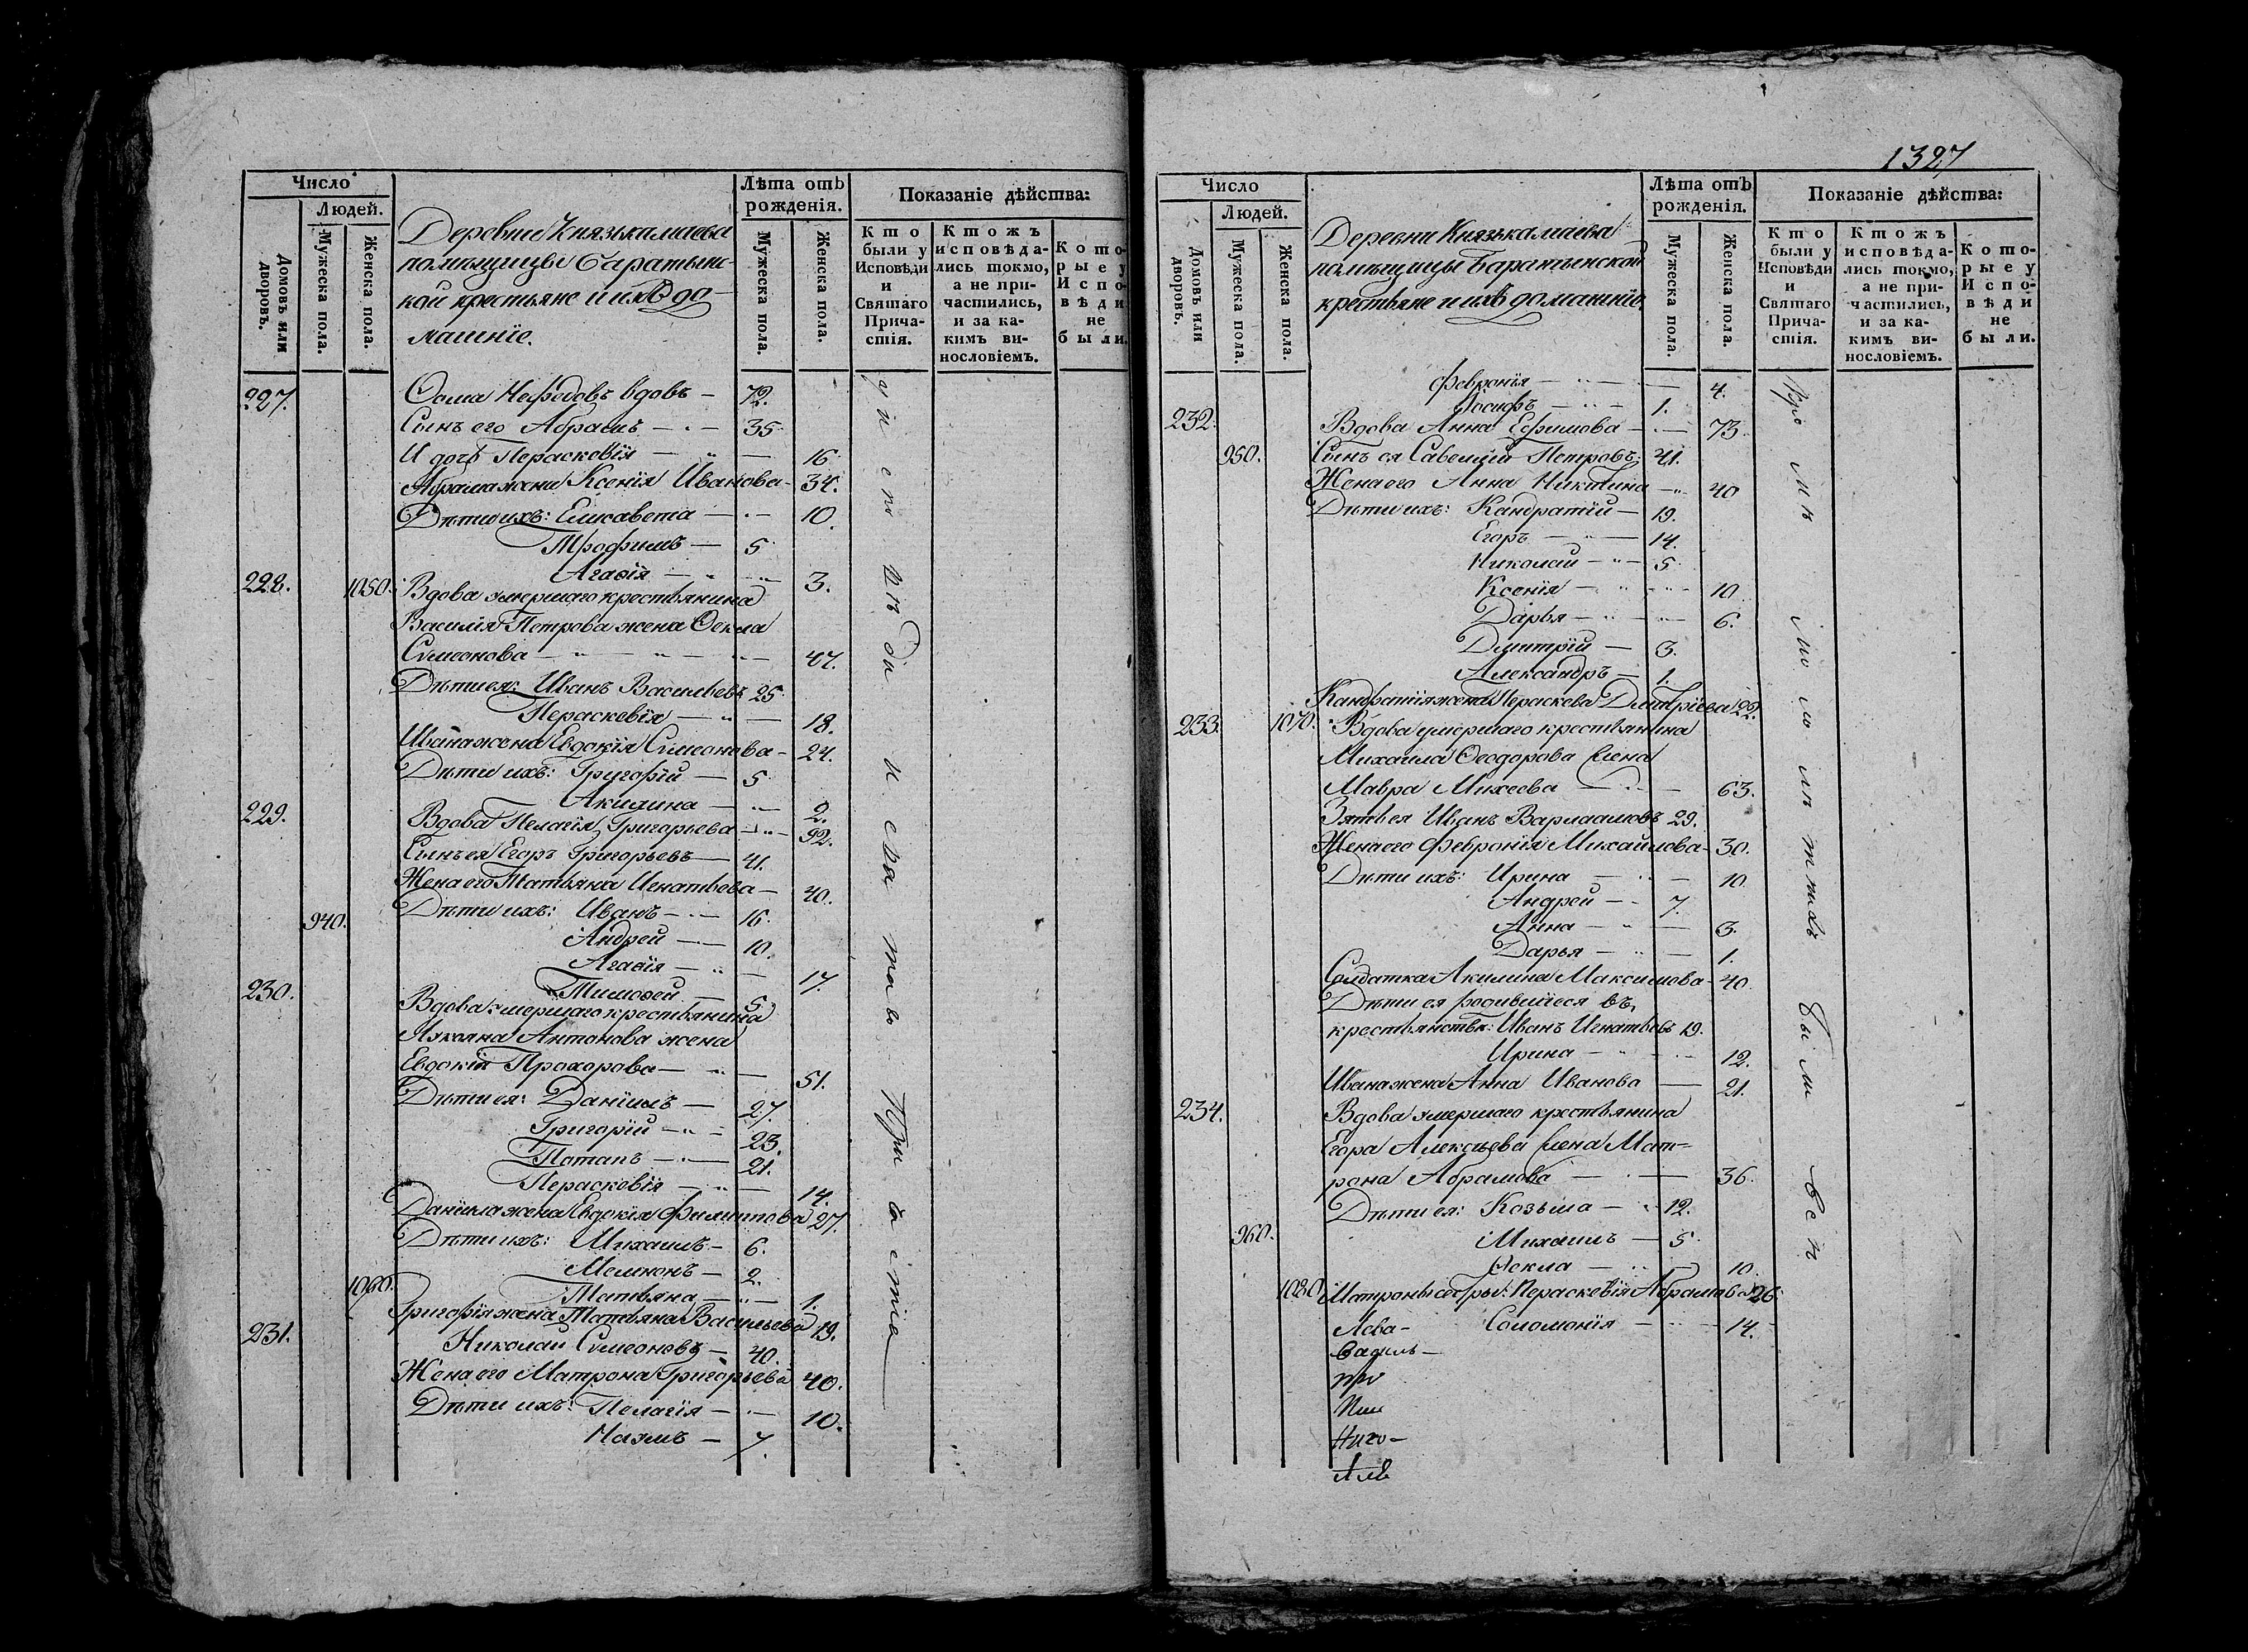 Число
Людей.
Домовъ или дворовъ.
Мужеска пола.
Женска пола.
Деревни Князькамаева
помѣщицы Баратынс-
кой крестьяне и ихъ до-
машніе.
Лѣта отъ рожденія.
Мужеска пола.
Женска пола.
Показаніе дѣйства:
Кто были у Исповѣди и Святаго Причастія.
Ктожъ исповѣдались токмо, а не причастились, и за какимъ винословіемъ.
Которые у Исповѣди не были.
227. Ѳома Нефедовъ вдовъ — 72.
Сынъ его Абрамъ — 35
И дочь Перасковія — 16
Абрама жена Ксенія Иванова — 34.
Дѣти ихъ: Елисавета — 10.
Трофимъ — 5
Агаѳія — 3.
228. 1050. Вдова умершаго крестьянина
Василія Петрова жена Ѳекла
Симеонова — 47.
Дѣти ея: Иванъ Васильевъ 25
Перасковія — 18.
Ивана жена Евдокія Симеонова — 24.
Дѣти ихъ: Григорій — 5
Акилина — 2.
229. Вдова Пелагія Григорьева — 92.
Сынъ ея Егоръ Григорьевъ — 41.
Жена его Татьяна Игнатьева — 40.
Дѣти ихъ: Иванъ — 16.
940. Андрей — 10.
Агаѳія — 17.
Тимоѳей — 5
230. Вдова умершаго крестьянина
Антонова жена
Евдокія Прохорова — 51.
Дѣти ея: Даніилъ — 27.
Григорій — 23.
Потапъ — 21.
Перасковія — 14.
Даніила жена Евдокія Филиппова 27.
Дѣти ихъ: Михаилъ — 6.
Мемнонъ — 2.
Татьяна — 1.
1060. Григорія жена Татьяна Васильева 19.
231. Николай Симеоновъ — 40.
Жена его Матрона Григорьева 40.
Дѣти ихъ: Пелагія — 10.
Наумъ — 7.
и святаго Причастіа
1327
Число
Людей.
Домовъ или дворовъ.
Мужеска пола.
Женска пола.
Деревни Князькамаева
помѣщицы Баратынской
крестьяне и ихъ домашніе.
Лѣта отъ рожденія.
Мужеска пола.
Женска пола.
Показаніе дѣйства:
Кто были у Исповѣди и Святаго Причастія.
Ктожъ исповѣдались токмо, а не причастились, и за какимъ винословіемъ.
Которые у Исповѣди не были.
Февронія — 4.
Іосифъ — 1.
232. Вдова Анна Ефимова — 73
950. Сынъ ея Савелій Петровъ 41.
Жена его Анна Никитина — 40
Дѣти ихъ: Кандратій — 19.
Егоръ — 14.
Николай — 5
Ксенія — 10
Дарья — 6.
Дмитрій — 3.
Александръ — 1.
Кандратія жена Пераскева Дмитріева 22.
233. 1070. Вдова умершаго крестьянина
Михаила Ѳеодорова жена
Мавра Михеева — 63.
Зять ея Иванъ Варлаамовъ 29.
Жена его Февронія Михайлова — 30.
Дѣти ихъ: Ирина — 10
Андрей — 7.
Анна — 3.
Дарья — 1.
Солдатка Акилина Максимова — 40.
Дѣти ея родившіеся въ
крестьянствѣ: Иванъ Игнатьевъ 19.
Ирина — 12.
Ивана жена Анна Иванова — 21.
234. Вдова умершаго крестьянина
Егора Алексѣева жена Мат-
рона Абрамова — 36.
Дѣти ея: Козьма — 12.
960. Михаилъ — 5
Ѳекла — 10
1080. Матроны сестры: Перасковія Абрамова 26
Соломонія — 14.
были всѣ